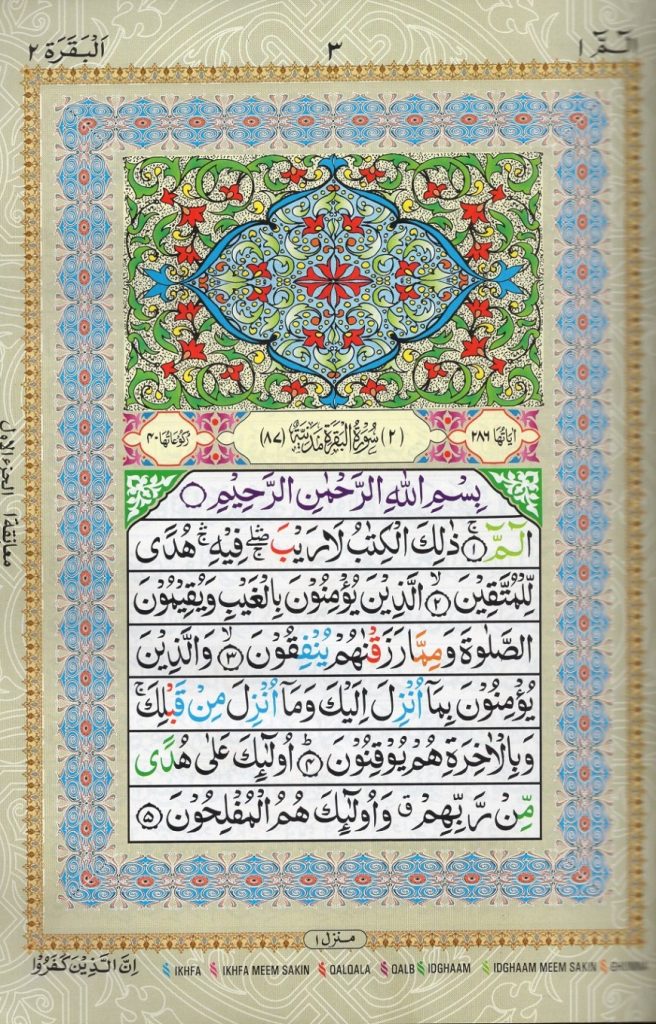 الٓـمّٓ ١
٣
اَلْبَقَرَة ٢
اٰیَاتُهَا ٢٨٦
(٢) سُوْرَةُ الْبَقَرَةِ مَدَنِیَّةٌ (٨٧)
رُكُوْعَاتُهَا ٤٠
بِسْمِ اللّٰهِ الرَّحْمٰنِ الرَّحِیْمِ ۝
الٓـمّٓ ۚ﴿١﴾ ذٰلِكَ الْكِتٰبُ لَا رَیْبَ ۛۖ فِیْهِ ۛۚ هُدًی
لِّلْمُتَّقِیْنَ ۙ﴿٢﴾ الَّذِیْنَ یُؤْمِنُوْنَ بِالْغَیْبِ وَیُقِیْمُوْنَ
الصَّلٰوةَ وَمِمَّا رَزَقْنٰهُمْ یُنْفِقُوْنَ ۙ﴿٣﴾ وَالَّذِیْنَ
یُؤْمِنُوْنَ بِمَاۤ اُنْزِلَ اِلَیْكَ وَمَاۤ اُنْزِلَ مِنْ قَبْلِكَ ۚ
وَبِالْاٰخِرَةِ هُمْ یُوْقِنُوْنَ ؕ﴿٤﴾ اُولٰٓئِكَ عَلٰی هُدًی
مِّنْ رَّبِّهِمْ ۗ وَاُولٰٓئِكَ هُمُ الْمُفْلِحُوْنَ ﴿٥﴾
معانقة ١ الجزء الاول
منزل ١
اِنَّ الَّذِیْنَ كَفَرُوْا
IKHFA IKHFA MEEM SAKIN QALQALA QALB IDGHAAM IDGHAAM MEEM SAKIN GHUNNA